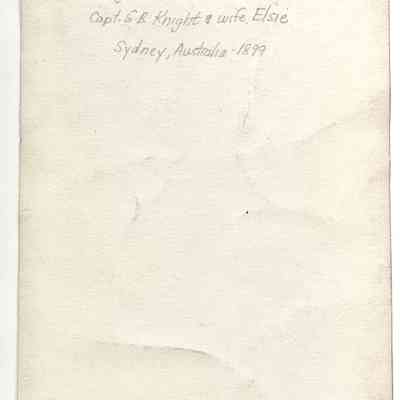 Capt. S. B. Knight & wife, Elsie
Sydney, Australia - 1899